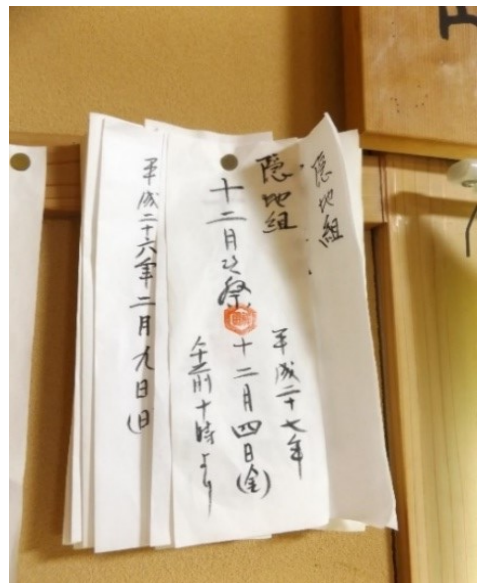 隠地組
隠地組
十二月之祭
平成二十七年
十二月四日(金)
午前十時より
平成二十六年二月九日(日